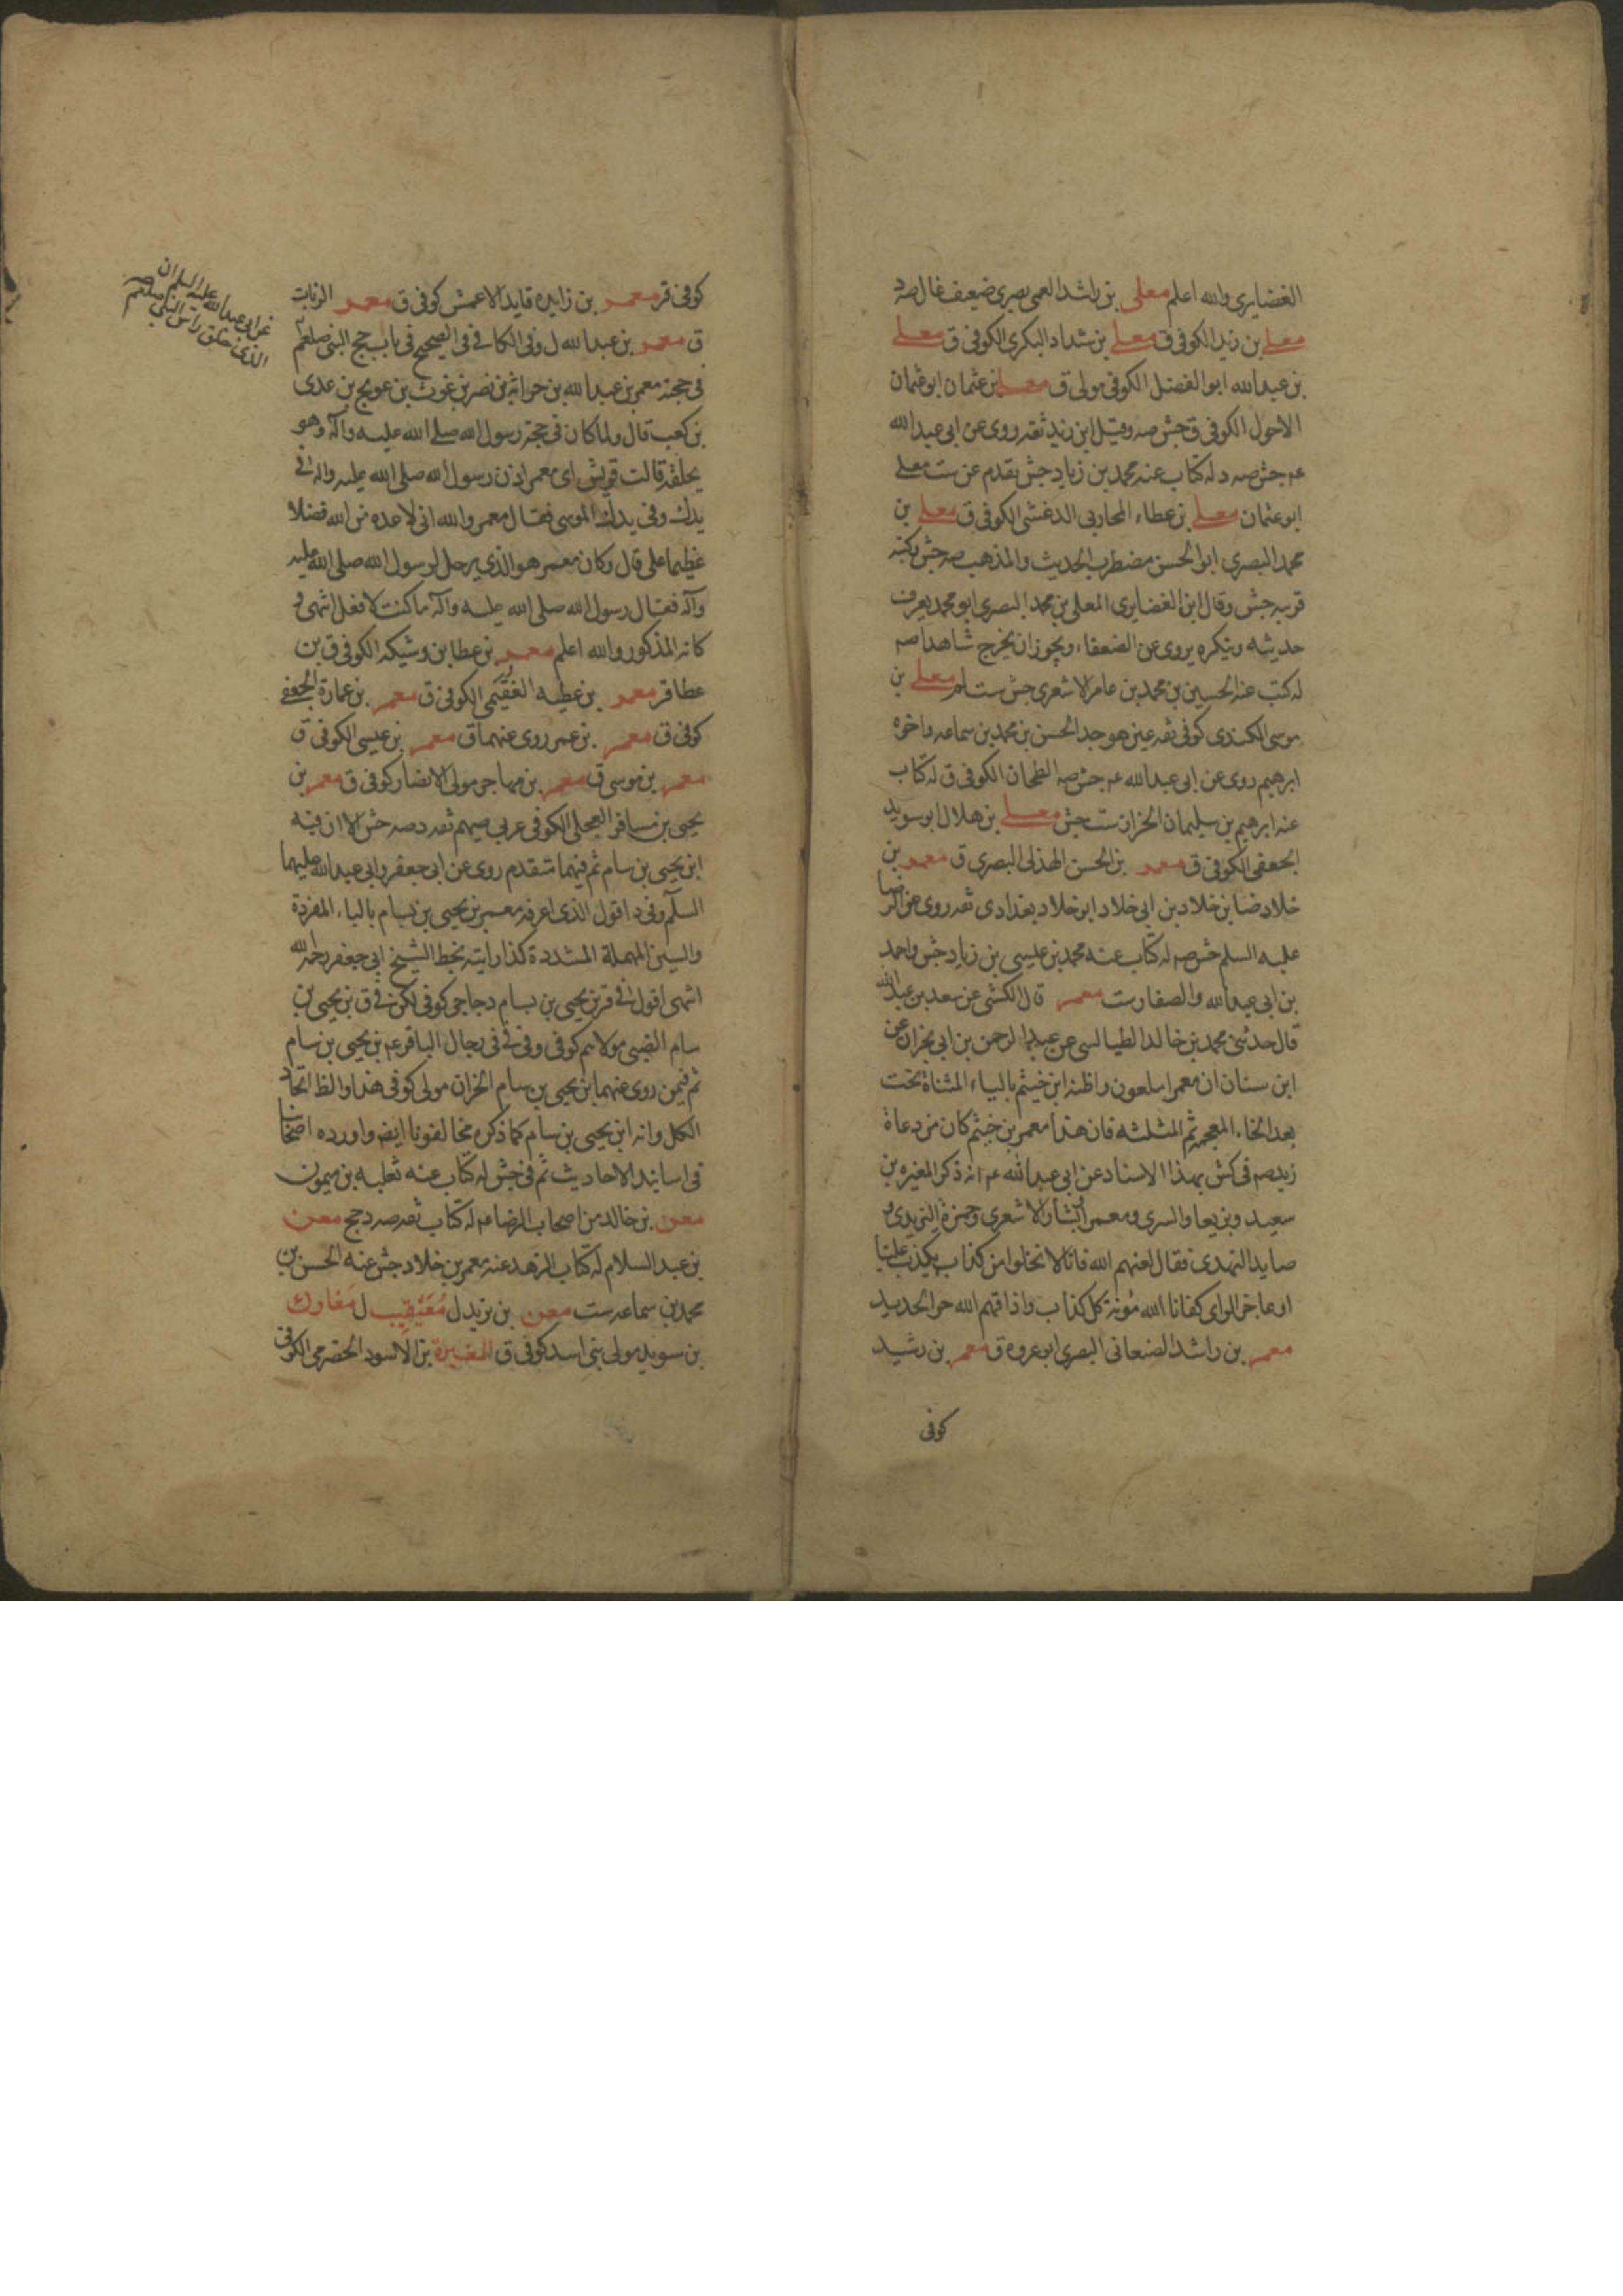 الغضايرى والله اعلم معلى بن راشد العمى بصرى ضعيف غال صه د
معلى بن زيد الكوفى ق معلى بن شداد البكرى الكوفى ق معلى
بن عبدالله ابو الفضل الكوفى مولى ق معلى بن عثمان ابو عثمان
الاحول الكوفى ق جش صه وقيل ابن زيد ثقه روى عن ابى عبدالله
عم جش صه د له كتاب عنه محمد بن زياد جش تقدم عن ست معلى
ابو عثمان معلى بن عطاء المحاربى الدغشى الكوفى ق معلى بن
محمد البصرى ابو الحسن مضطرب الحديث والمذهب صه جش وكتبه
قريبه جش وقال ابن الغضايرى المعلى بن محمد البصرى ابو محمد يعرف
حديثه وينكره يروى عن الضعفاء ويجوز ان يخرج شاهدا صه
له كتب عنه الحسين بن محمد بن عامر الاشعرى جش ست لم معلى بن
موسى الكندى كوفى ثقه عين هو جد الحسن بن محمد بن سماعه واخوه
ابرهيم روى عن ابى عبدالله عم جش صه الطحان الكوفى ق له كتاب
عنه ابرهيم بن سليمان الخزاز ست جش معلى بن هلال ابو سويد
الجعفى الكوفى ق معمر بن الحسن الهذلى البصرى ق معمر بن
خلاد ضا بن خلاد بن ابى خلاد ابو خلاد بغدادى ثقه روى عن الرضا
عليه السلم جش صه له كتاب عنه محمد بن عيسى بن زياد جش واحمد
بن ابى عبدالله والصفار ست معمر قال الكشى عن سعد بن عبدالله
قال حدثنى محمد بن خالد الطيالسى عن عبدالرحمن بن ابى نجران عن
ابن سنان ان معمرا ملعون واظنه ابن خيثم بالياء المثناة تحت
بعد الخاء المعجمه ثم المثلثه فان هذا معمر بن خيثم كان من دعاة
زيد صه فى كش بهذا الاسناد عن ابى عبدالله عم انه ذكر المغيره بن
سعيد وبزيعا والسرى ومعمرا وبشار الاشعرى وحمزة اليزيدى و
صايد النهدى فقال لعنهم الله فانا لا نخلوا من كذاب يكذب علينا
او عاجز الراى كفانا الله مؤنة كل كذاب واذاقهم الله حر الحديد
معمر بن راشد الصنعانى البصرى ابو عروه ق معمر بن رشيد
كوفى
كوفى قر معمر بن زايده قايد الاعمش كوفى ق معمر الزيات
ق معمر بن عبدالله ل وفى الكافى فى الصحيح فى باب حج النبى صلعم
فى حجته معمر بن عبدالله بن حراثة بن نصر بن غوث بن عويج بن عدى
بن كعب قال ولما كان فى حجة رسول الله صلى الله عليه وآله وهو
يحلقه قالت قريش اى معمر اذن رسول الله صلى الله عليه واله فى
يدك وفى يدك الموسى فقال معمر والله انى لاعده من الله فضلا
عظيما على قال وكان معمر هو الذى يرحل لرسول الله صلى الله عليه
وآله فقال رسول الله صلى الله عليه وآله ما كنت لافعل انتهى و
كانه المذكور والله اعلم معمر بن عطا بن وشيكه الكوفى ق بن
عطا قر معمر بن عطيه الفقيمى الكوفى ق معمر بن عمارة الجعفى
كوفى ق معمر بن عمر روى عنهما ق معمر بن عيسى الكوفى ق
معمر بن موسى ق معمر بن مهاجر مولى الانصار كوفى ق معمر بن
يحيى بن مسافر العجلى الكوفى عربى صميم ثقه د صه جش الا ان فيه
ابن يحيى بن سام ثم فيهما متقدم روى عن ابى جعفر وابى عبدالله عليهما
السلم وفى د اقول الذى اعرفه معمر بن يحيى بن بسام بالباء المفردة
والسين المهملة المشددة كذا رايته بخط الشيخ ابى جعفر رحمه الله
انتهى اقول فى قر بن يحيى بن بسام دجاجى كوفى لكن فى ق بن يحيى بن
سام الضبى مولاهم كوفى وفى قى فى رجال الباقر عم بن يحيى بن سام
ثم فيمن روى عنهما بن يحيى بن سام الخزاز مولى كوفى هذا والظ اتحاد
الكل وانه ابن يحيى بن سام كما ذكره مخالفونا ايضه واورده اصحابنا
فى اسانيد الاحاديث ثم فى جش له كتاب عنه ثعلبه بن ميمون
معن بن خالد من اصحاب الرضا عم له كتاب ثقه صه د جخ معن
بن عبد السلام له كتاب الزهد عنه معمر بن خلاد جش عنه الحسن بن
محمد بن سماعه ست معن بن يزيد ل معيقيب ل مغاوك
بن سويد مولى بنى اسد كوفى ق المغيرة بن الاسود الحضرمى الكوفى
عن ابى عبدالله عليه السلم ان
الذى حلق راس النبى صلعم